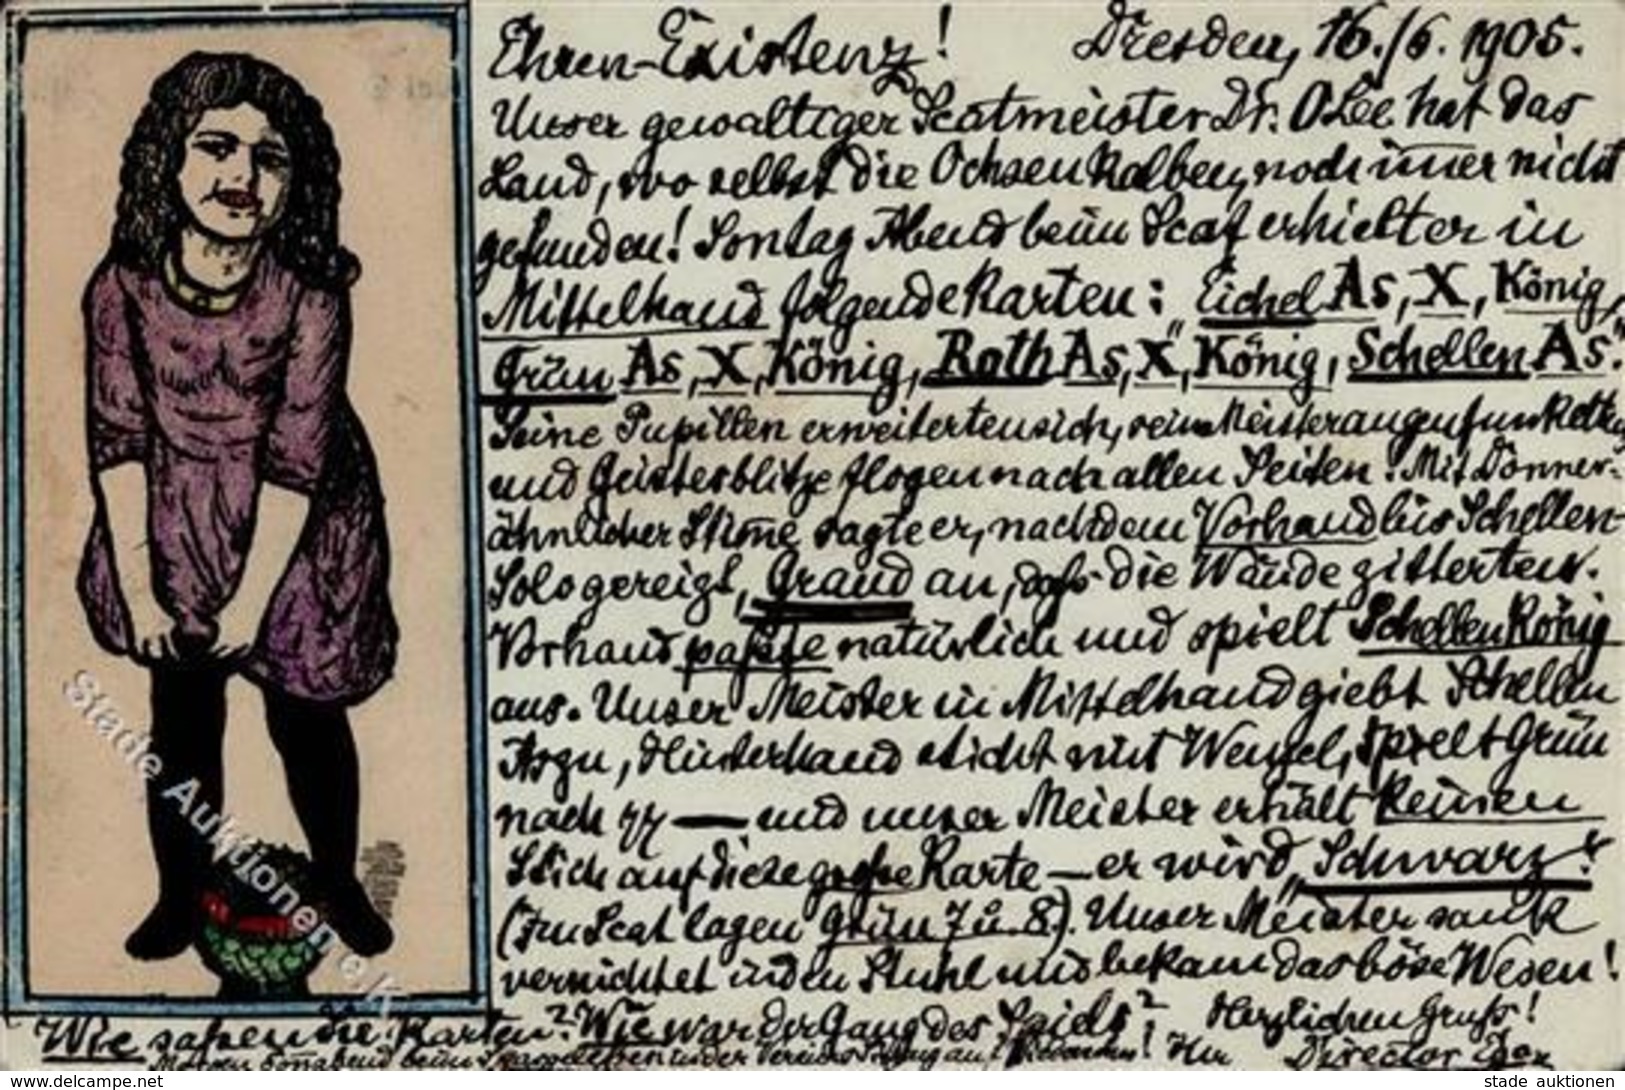 Ehren-Existenz! Dresden, 16./6. 1905.
Unser gewaltiger Scatmeister Dr. OLee hat das
Land, wo selbst die Ochsen kalben, noch im̅er nicht
gefunden! Sontag Abend beim Scat erhielt er in
Mittelhand folgende Karten: Eichel As, X, König,
Grün As, X, König, Roth As, X, König, Schellen As."
Seine Pupillen erweiterten sich, seine Meisteraugen funkelten
und Geisterblitze flogen nach allen Seiten! Mit Donner-
ähnlicher Stim̅e sagte er, nachdem Vorhand bis Schellen-
Solo gereizt, "Grand" an, daß die Wände zitterten.
Vorhand paßte natürlich und spielt Schellen König
aus. Unser Meister in Mittelhand giebt Schellen
As zu, Hinterhand sticht mit Wenzel, spielt Grün
nach — und unser Meister erhält keinen
Stich auf diese große Karte — er wird "Schwarz"!
(Im Scat lagen Grün 7 u. 8). Unser Meister sank
vernichtet in den Stuhl und bekam das böse Wesen!
Wie saßen die Karten? Wie war der Gang des Spiels? Herzlichen Gruß!
Morgen Sonnabend beim in der Ihr Director
Stade Auktionen e.K.
www.delcampe.net
stade auktionen